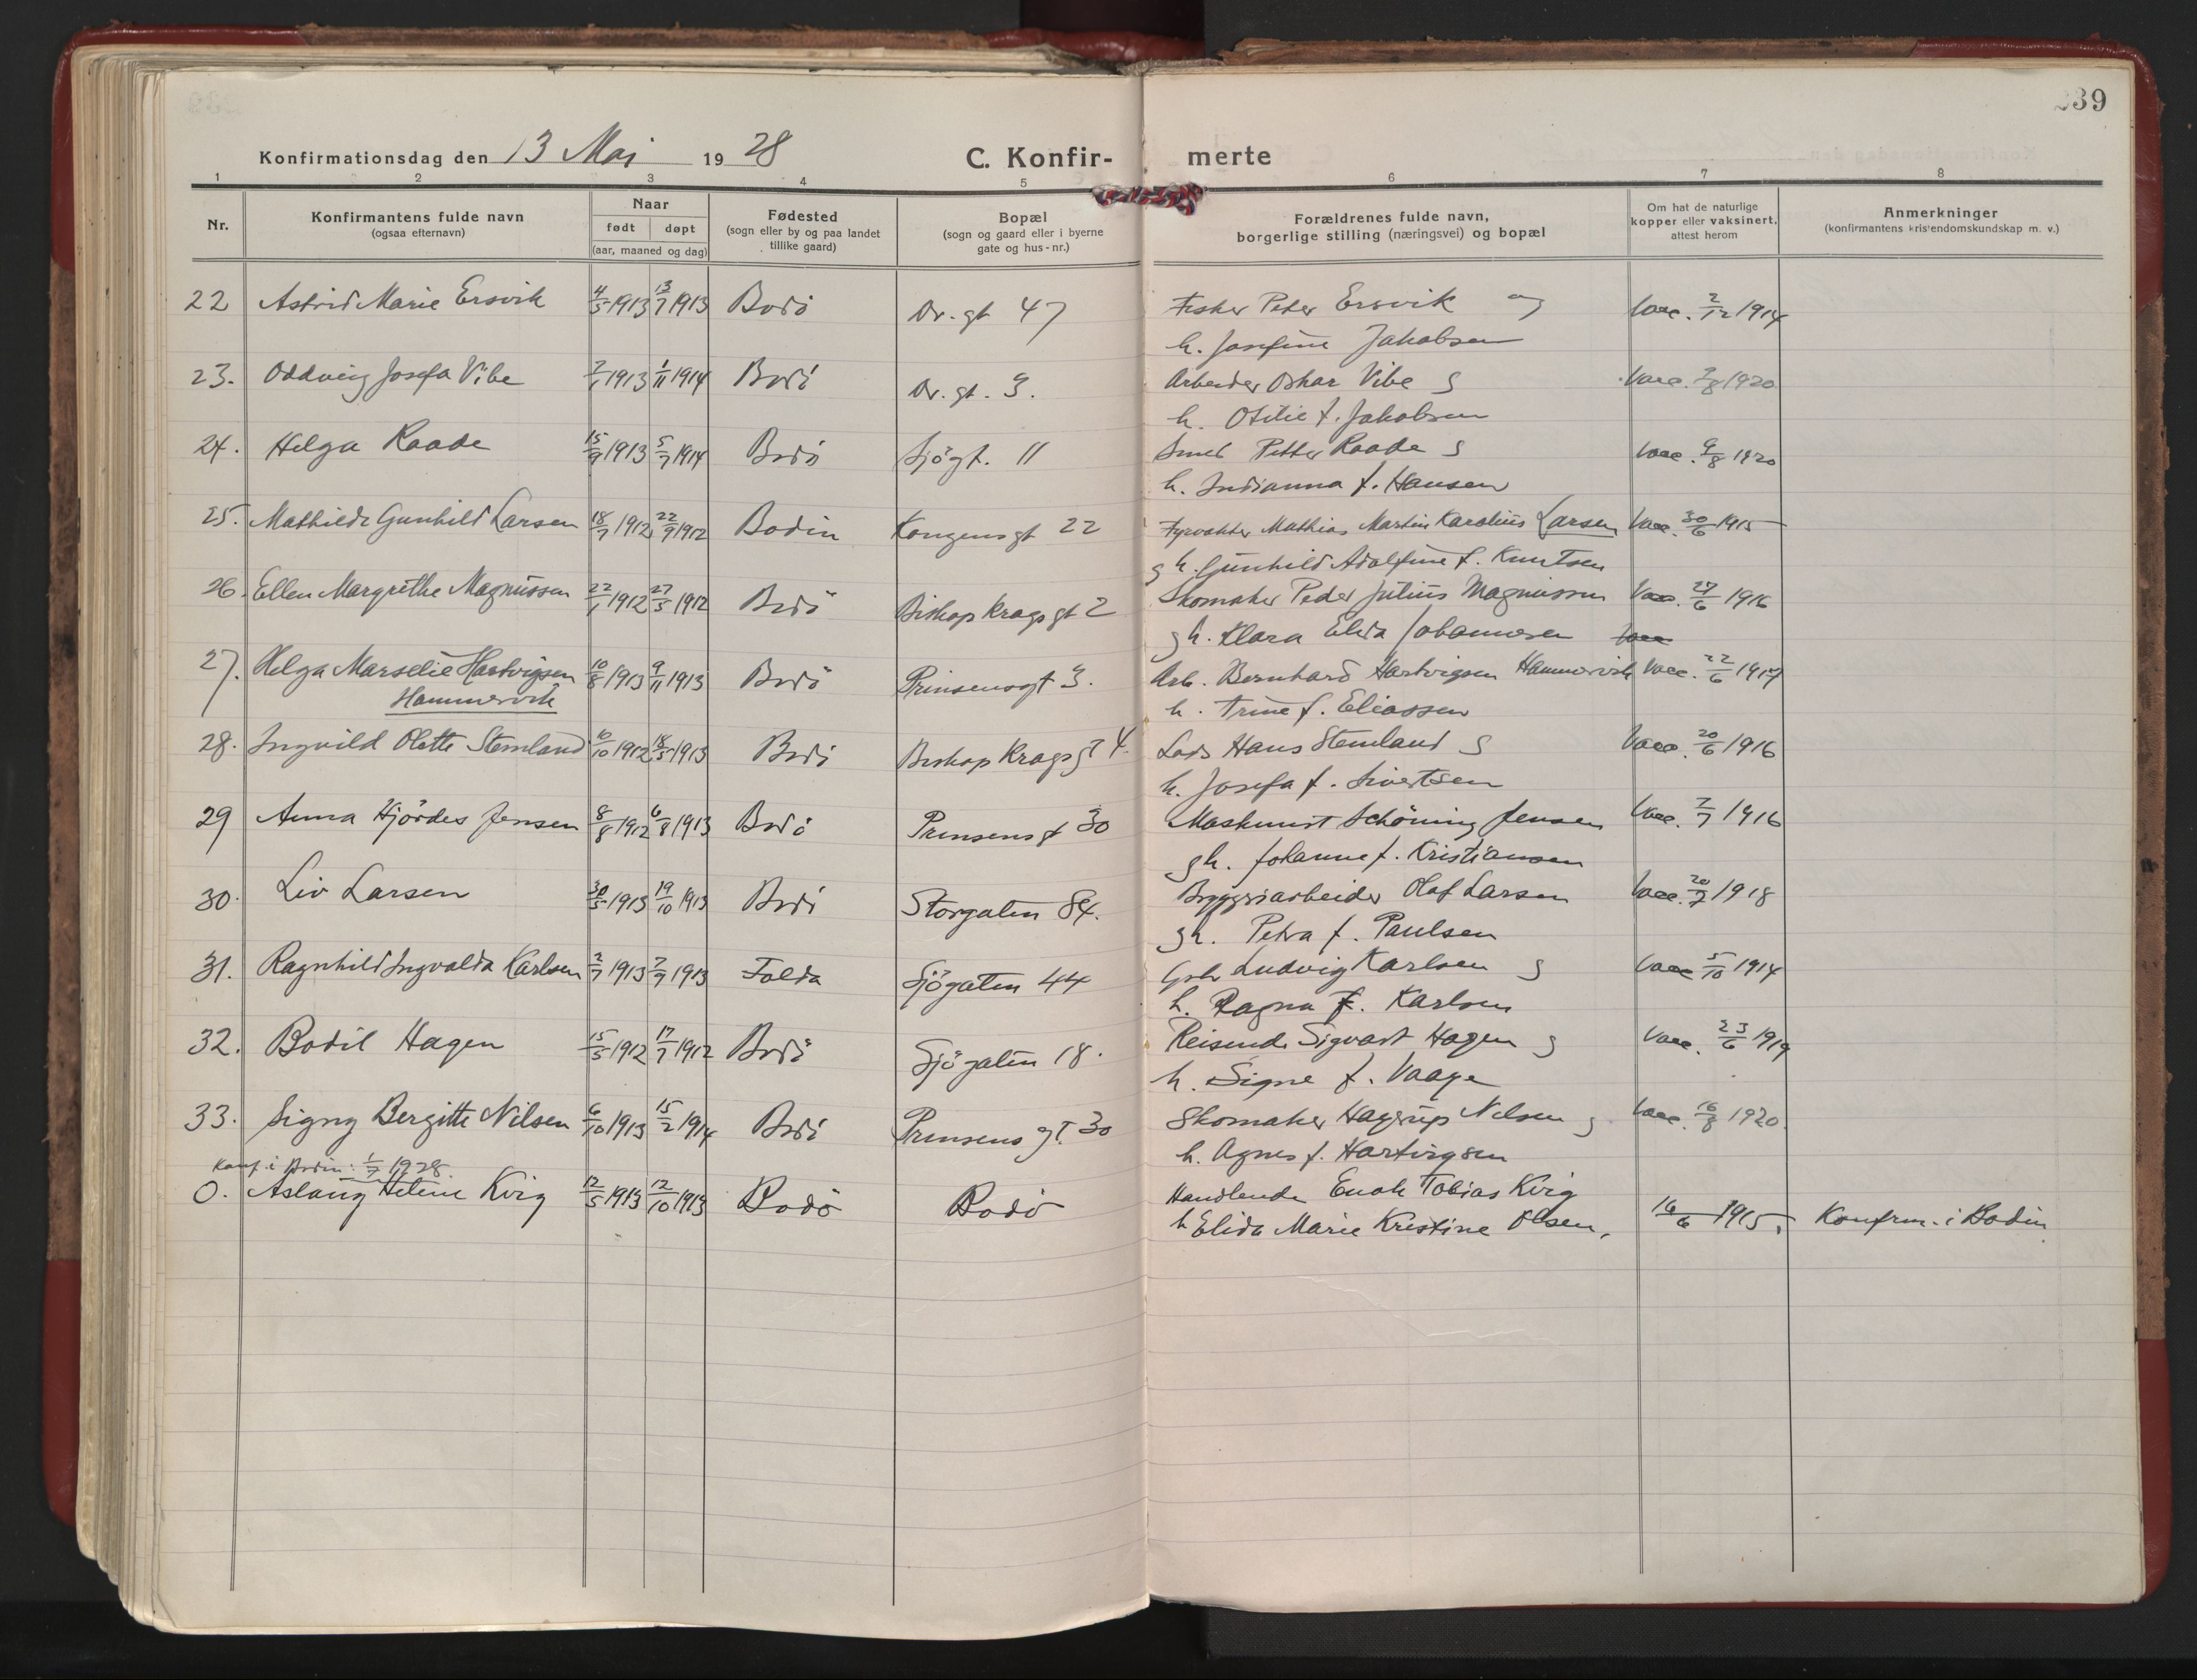 239
Konfirmationsdag den 13 Mai 1928
C. Konfir- merte
1 2 3 4 5 6 7 8
Nr.
Konfirmantens fulde navn
(ogsaa efternavn)
Naar
født døpt
(aar, maaned og dag)
Fødested
(sogn eller by og paa landet
tillike gaard)
Bopæl
(sogn og gaard eller i byerne
gate og hus-nr.)
Forældrenes fulde navn,
borgerlige stilling (næringsvei) og bopæl
Om hat de naturlige
kopper eller vaksinert,
attest herom
Anmerkninger
(konfirmantens kristendomskundskap m. v.)
22 Astrid Marie Ersvik 4/5 1913 13/7 1913 Bodö Dr. gt 47 Fisker Peter Ersvik og Vacc. 2/12 1914
h. Josefine Jakobsen
23. Oddveig Josefa Vibe 1913 1/11 1914 Bodö Dr. gt. 3. Arbeider Oskar Vibe g Vacc. 9/8 1920
h. Otilie f. Jakobsen
24. Helga Raade 15/9 1913 5/7 1914 Bodö Sjögt. 11 Smed Petter Raade g Vacc. 9/8 1920
h. Indianna f. Hansen
25. Mathilde Gunhild Larsen 18/7 1912 22/9 1912 Bodin Kongensgt 22 Fyrvokter Mathias Martin Karolius Larsen Vacc. 30/6 1915
g h. Gunhild Adolfine f. Knutsen
26. Ellen Margrethe Magnussen 22/1 1912 27/5 1912 Bodö Biskop Kragsgt 2 Skomaker Peder Julius Magnussen Vacc. 27/6 1916
g h. Klara Elida Johannesen Vacc
27. Helga Marselie Hartvigsen 10/8 1913 9/11 1913 Bodö Prinsensgt 3. Arb. Bernhard Hartvigsen Hammervik Vacc. 22/6 1917
Hammervik h. Trine f. Eliassen
28. Ingvild Olette Stemland 10/10 1912 18/5 1913 Bodö Biskop Kragsgt 4. Lods Hans Stemland g Vacc. 20/6 1916
h. Josefa f. Sivertsen
29 Anna Hjördes Jensen 8/8 1912 6/8 1913 Bodö Prinsensgt 30 Maskinist Schöning Jensen Vacc. 7/7 1916
g h. Johanne f. Kristiansen
30. Liv Larsen 30/5 1913 19/10 1913 Bodö Storgaten 84. Bryggeriarbeider Olaf Larsen Vacc. 20/7 1918
g h. Petra f. Paulsen
31. Ragnhild Ingvalda Karlsen 2/7 1913 7/9 1913 Folda Sjögaten 44 Ludvig Karlsen g Vacc 5/10 1914
h. Ragna f. Karlsen
32. Bodil Hagen 15/5 1912 17/7 1912 Bodö Sjögaten 18. Reisende Sigvart Hagen g Vacc. 23/6 1919
h. Signe f. Vaage
33. Signy Bergitte Nilsen 6/10 1913 15/2 1914 Bodö Prinsens gt. 30 Skomaker Hagerup Nilsen g. Vacc. 16/8 1920
h. Agnes f. Hartvigsen
Konf. i Bodin: 1/7 1928.
0. Aslaug Helene Kvig 12/5 1913 12/10 1913 Bodö Bodö Handlende Enok Tobias Kvig
h Elida Marie Kristine Olsen, 16/6 1915. Konfirm. i Bodin